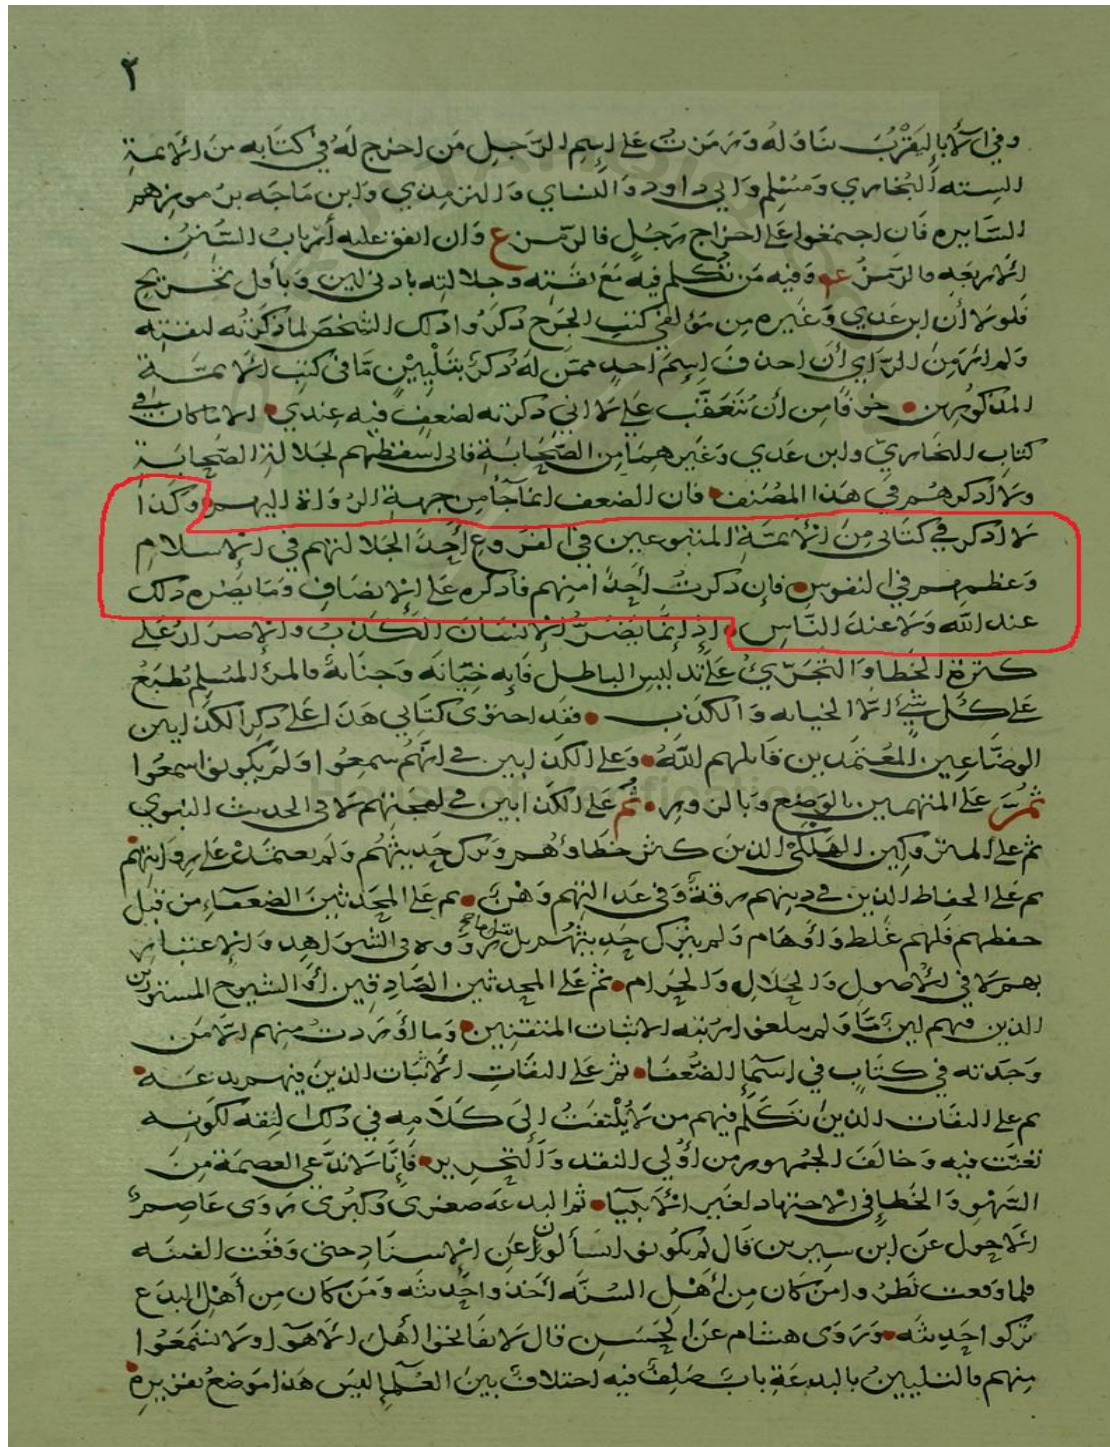 ٢
وفي الآباء ليقرب تناوله ورمزت على اسم الرجل من اخرج له في كتابه من الائمة
الستة البخاري ومسلم وابي داود والنساي والترمذي وابن ماجه برموزهم
السايره فان اجتمعوا على اخراج رجل فالرمز ع وان اتفق عليه أرباب السنن
الاربعه فالرمز عو وفيه من تكلم فيه مع ثقته وجلالته بادنى لين وباقل تخريج
فلولا أن ابن عدي وغيره من مؤلفي كتب الجرح ذكروا ذلك الشخص لما ذكرته لثقته
ولم ار من الراي أن احذف اسم احد ممن له ذكر بتليين ما في كتب الائمة
المذكورين خوفا من أن يتعقب علي لا اني ذكرته لضعف فيه عندي الا ما كان في
كتاب البخاري وابن عدي وغيرهما من الصحابة فاني اسقطهم لجلالة الصحابة
ولا اذكرهم في هذا المصنف فان الضعف انما جا من جهة الرواة اليهم وكذا
لا اذكر في كتابي من الائمة المتبوعين في الفروع أحدا لجلالتهم في الاسلام
وعظمهم في النفوس فإن ذكرت أحدا منهم فاذكره على الانصاف وما يضره ذلك
عند الله ولا عند الناس إذ إنما يضر الانسان الكذب والاصرار على
كثرة الخطا والتجري على تدليس الباطل فانه خيانه وجناية فالمرء المسلم يطبع
على كل شئ الا الخيانه والكذب فقد احتوى كتابي هذا على ذكر الكذابين
الوضاعين المتعمدين قاتلهم الله وعلى الكذابين في انهم سمعوا ولم يكونوا سمعوا
ثم على المتهمين بالوضع وبالزور ثم على الكذابين في لهجتهم لا في الحديث النبوي
ثم على المتروكين الهلكى الذين كثر خطاوهم وترك حديثهم ولم يعتمد على روايتهم
ثم على الحفاظ الذين في دينهم رقة وفي عدالتهم وهن ثم على المحدثين الضعفاء من قبل
حفظهم فلهم غلط واوهام ولم يترك حديثهم بل في الشواهد والاعتبار
بهم لا في الاصول والحلال والحرام ثم على المحدثين الصادقين أو الشيوخ المستورين
الذين فيهم لين ما ولم يبلغوا رتبة الاثبات المتقنين وما أوردت منهم الا من
وجدته في كتاب في اسما الضعفا ثم على الثقات الاثبات الذين فيهم بدعة
ثم على الثقات الذين تكلم فيهم من لا يلتفت الى كلامه في ذلك الثقه لكونه
تعنت فيه وخالف الجمهور من أولي النقد والتحرير فإنا لا ندعي العصمة من
السهو والخطإ في الاجتهاد لغير الانبيا ثم البدعه صغرى وكبرى روى عاصم
الاحول عن ابن سيرين قال لم يكونوا يسألون عن الاسناد حتى وقعت الفتنه
فلما وقعت نظروا من كان من أهل السنه أخذوا حديثه ومن كان من أهل البدع
تركوا حديثه وروى هشام عن الحسن قال لا تفاتحوا أهل الاهوا ولا تسمعوا
منهم فالتليين بالبدعة باب مختلف فيه اختلاف بين العلما ليس هذا موضع تقريره